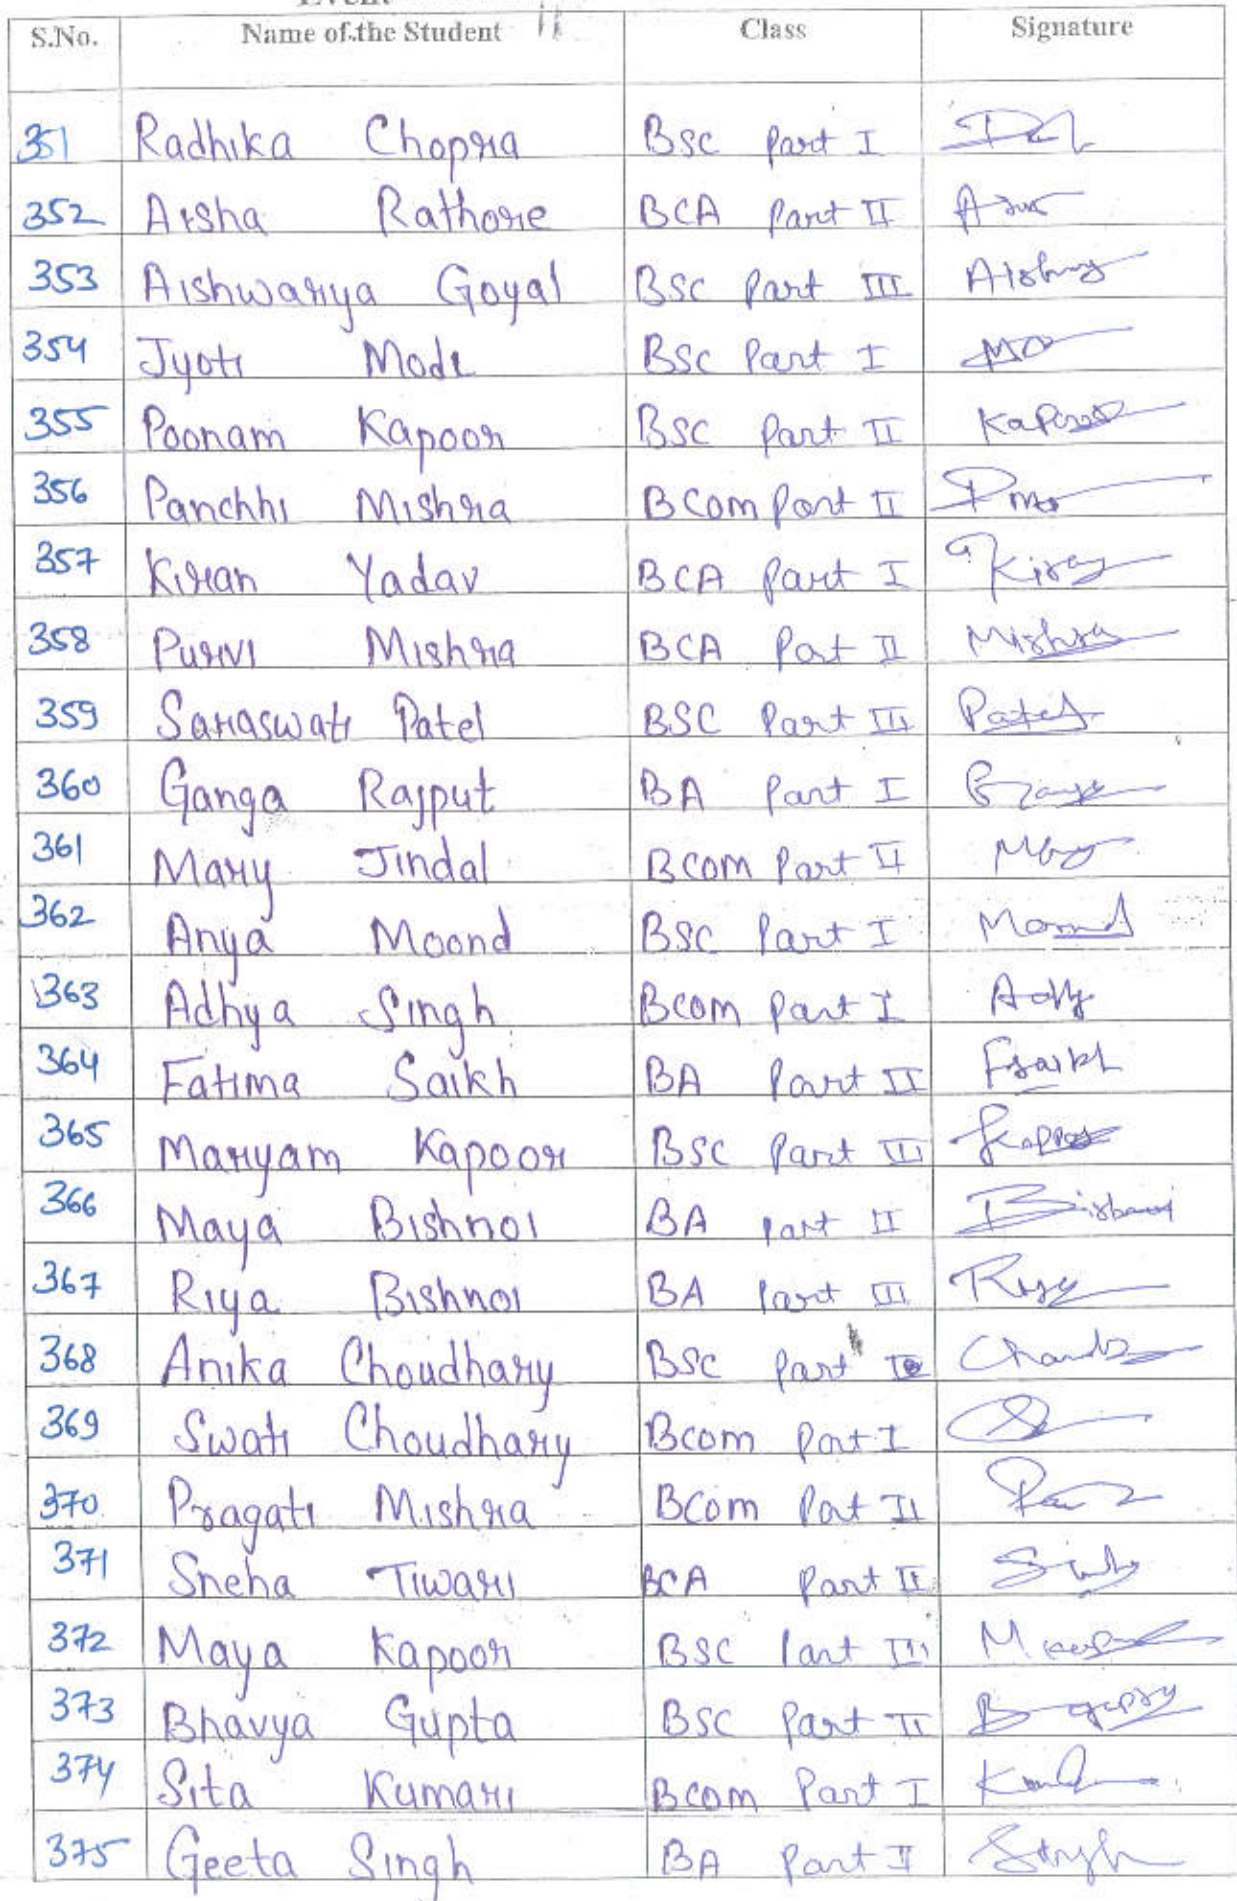 Event
S.No. Name of the Student Class Signature
351 Radhika Chopra BSC Part I
352 Aisha Rathore BCA Part II
353 Aishwarya Goyal BSC Part III
354 Jyoti Modi BSC Part I
355 Poonam Kapoor BSC Part II
356 Panchhi Mishra BCom Part II
357 Kiran Yadav BCA Part I Kiran
358 Purvi Mishra BCA Part II Mishra
359 Saraswati Patel BSC Part III Patel
360 Ganga Rajput BA Part I
361 Mary Jindal BCom Part II
362 Anya Moond BSC Part I Moond
363 Adhya Singh BCom Part I
364 Fatima Saikh BA Part II FSaikh
365 Maryam Kapoor BSC Part III
366 Maya Bishnoi BA Part II
367 Riya Bishnoi BA Part III Riya
368 Anika Choudhary BSC Part
369 Swati Choudhary BCom Part I
370 Pragati Mishra BCom Part II
371 Sneha Tiwari BCA Part II
372 Maya Kapoor BSC Part III
373 Bhavya Gupta BSC Part II
374 Sita Kumari BCom Part I
375 Geeta Singh BA Part II Singh